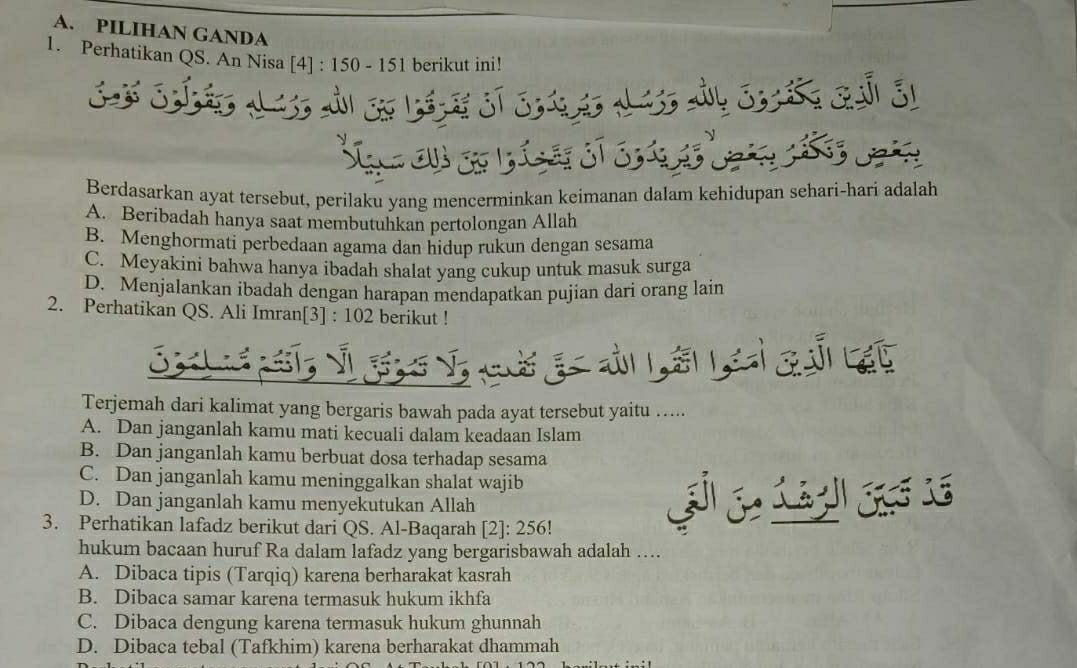 A. PILIHAN GANDA
1. Perhatikan QS. An Nisa [4] : 150 - 151 berikut ini!
اِنَّ الَّذِيْنَ يَكْفُرُوْنَ بِاللّٰهِ وَرُسُلِهٖ وَيُرِيْدُوْنَ اَنْ يُّفَرِّقُوْا بَيْنَ اللّٰهِ وَرُسُلِهٖ وَيَقُوْلُوْنَ نُؤْمِنُ
بِبَعْضٍ وَّنَكْفُرُ بِبَعْضٍۙ وَّيُرِيْدُوْنَ اَنْ يَّتَّخِذُوْا بَيْنَ ذٰلِكَ سَبِيْلًاۙ
Berdasarkan ayat tersebut, perilaku yang mencerminkan keimanan dalam kehidupan sehari-hari adalah
A. Beribadah hanya saat membutuhkan pertolongan Allah
B. Menghormati perbedaan agama dan hidup rukun dengan sesama
C. Meyakini bahwa hanya ibadah shalat yang cukup untuk masuk surga
D. Menjalankan ibadah dengan harapan mendapatkan pujian dari orang lain
2. Perhatikan QS. Ali Imran[3] : 102 berikut !
يٰٓاَيُّهَا الَّذِيْنَ اٰمَنُوا اتَّقُوا اللّٰهَ حَقَّ تُقٰىتِهٖ وَلَا تَمُوْتُنَّ اِلَّا وَاَنْتُمْ مُّسْلِمُوْنَ
Terjemah dari kalimat yang bergaris bawah pada ayat tersebut yaitu …..
A. Dan janganlah kamu mati kecuali dalam keadaan Islam
B. Dan janganlah kamu berbuat dosa terhadap sesama
C. Dan janganlah kamu meninggalkan shalat wajib
D. Dan janganlah kamu menyekutukan Allah
قَدْ تَّبَيَّنَ الرُّشْدُ مِنَ الْغَيِّ
3. Perhatikan lafadz berikut dari QS. Al-Baqarah [2]: 256!
hukum bacaan huruf Ra dalam lafadz yang bergarisbawah adalah ….
A. Dibaca tipis (Tarqiq) karena berharakat kasrah
B. Dibaca samar karena termasuk hukum ikhfa
C. Dibaca dengung karena termasuk hukum ghunnah
D. Dibaca tebal (Tafkhim) karena berharakat dhammah